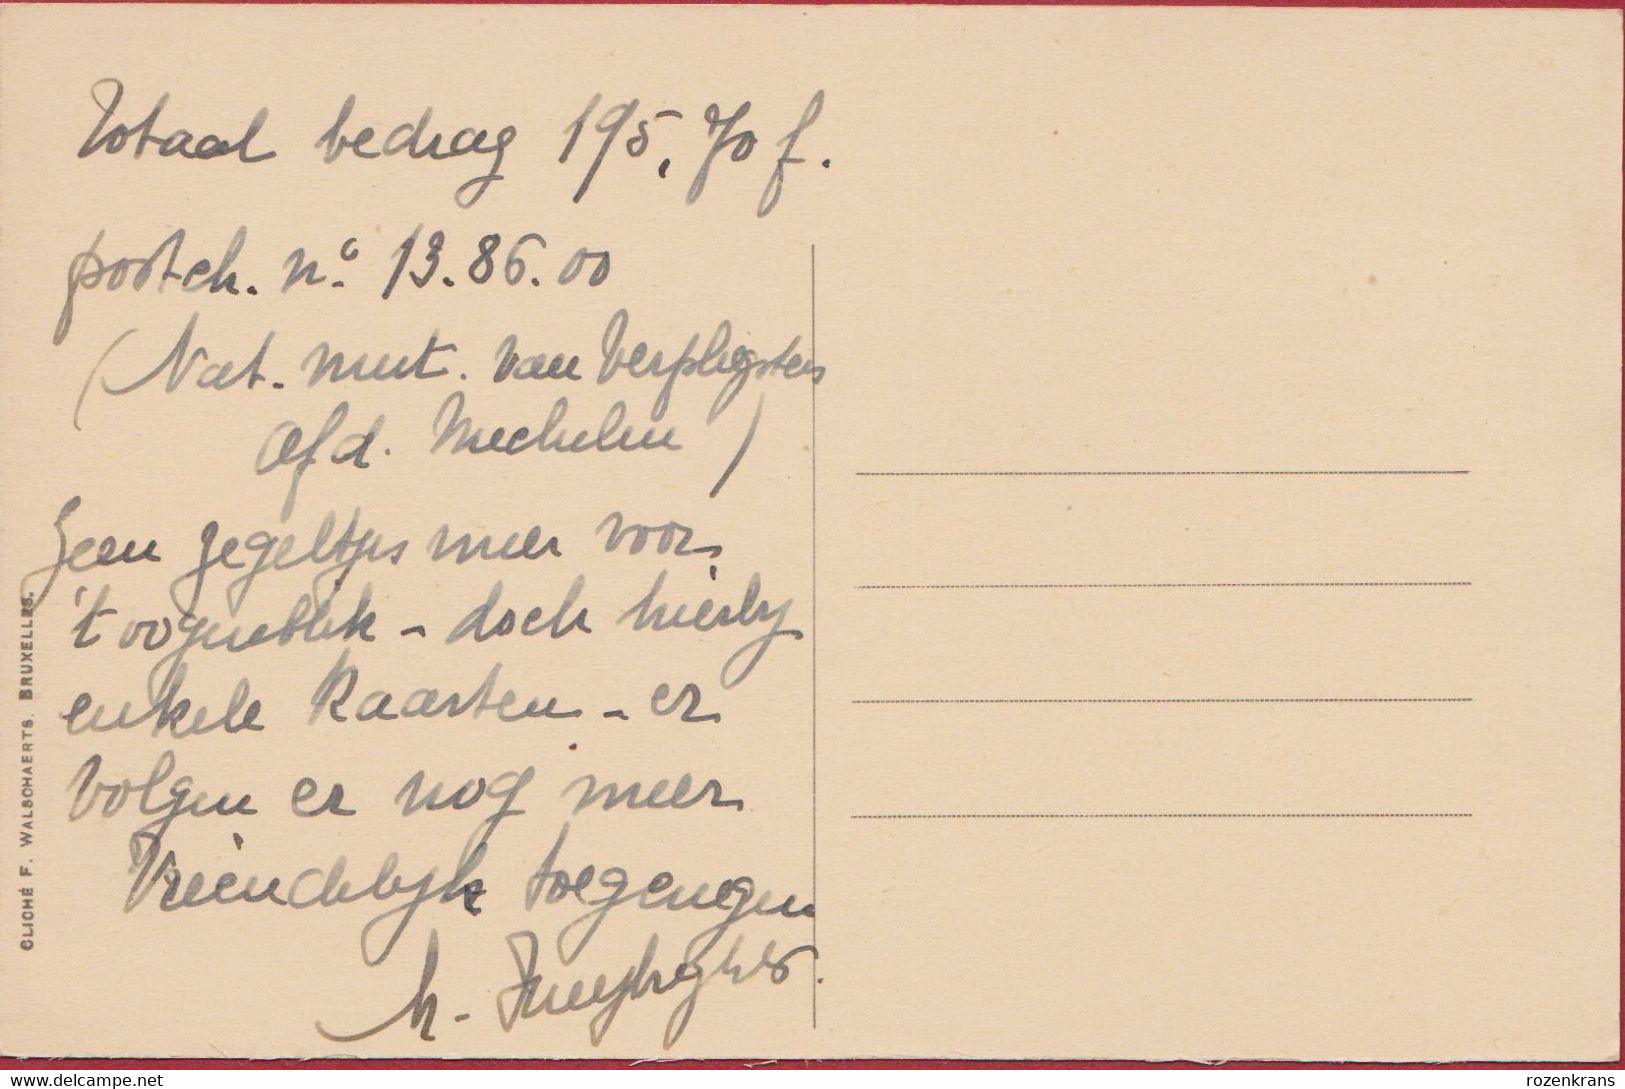 Totaal bedrag 195,70 f.
postch. n° 13.86.00
(Nat. mut. van Verplegsters
Afd. Mechelen)
Geen zegeltjes meer voor
't oogenblik - doch hierby
enkele kaarten - er
volgen er nog meer
Vriendelijk toegenegen
M.
CLICHÉ F. WALSCHAERTS. BRUXELLES.
delcampe.net
rozenkrans